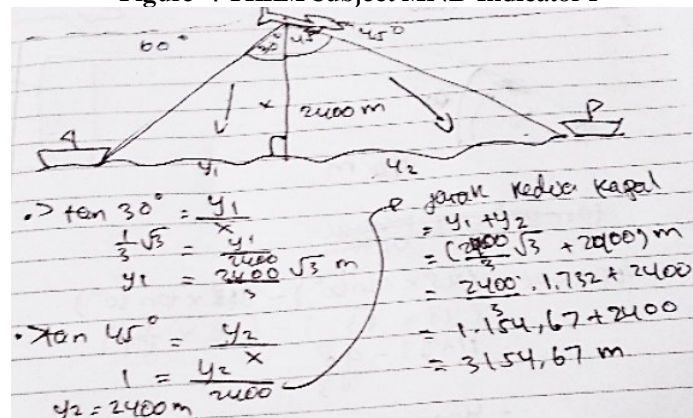 Figure Subject Indicator
60° 30° 45° 45°
x 2400 m
A P
y₁ y₂
•> tan 30° = y₁/x
1/3 √3 = y₁/2400
y₁ = 2400/3 √3 m
•> tan 45° = y₂/x
1 = y₂/2400
y₂ = 2400 m
jarak kedua kapal
= y₁ + y₂
= (2400/3 √3 + 2400) m
= 2400/3 . 1.732 + 2400
= 1.154,67 + 2400
= 3154,67 m